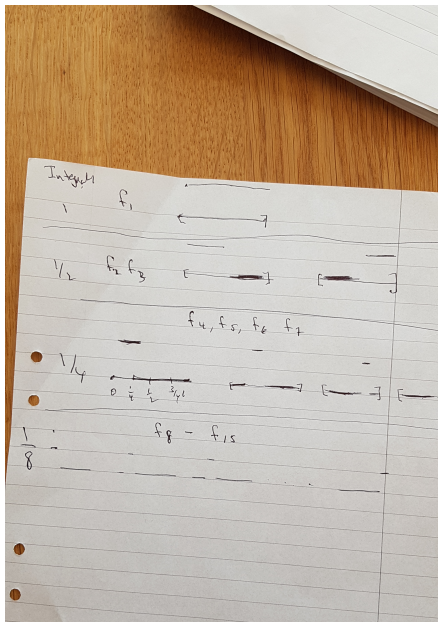 Integral
1 f₁
1/2 f₂ f₃
f₄, f₅, f₆ f₇
1/4
0 1/4 1/2 3/4 1
1/8 : f₈ - f₁₅